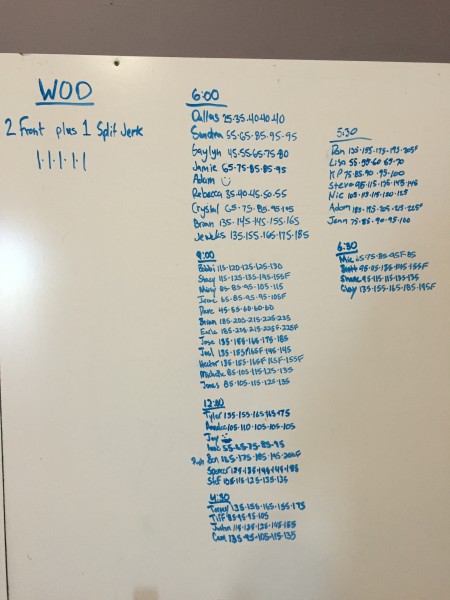 WOD
2 Front plus 1 Split Jerk
1·1·1·1·1
6:00
Dallas 25·35·40·40·40
Sandra 55·65·85·95·95
Gaylyn 45·55·65·75·80
Jamie 65·75·85·85·95
Adam
Rebecca 35·40·45·50·55
Crystal 65·75·85·95·105
Brian 135·145·145·155·165
Jenkks 135·155·165·175·185
9:00
Bobbi 115·120·125·125·130
Stacy 115·125·135·145·155F
Missy 65·85·95·105·115
Irene 65·85·95·95·105F
Dave 45·55·60·60·60
Brian 185·205·215·225·235
Earle 185·205·215·225F·225F
Jose 135·155·165·175·185
Joel 135·155·165F·145·145
Hector 135·155·165F·165F·155F
Michelle 85·105·115·125·135
Jonas 85·105·115·125·135
12:00
Tyler 135·155·165·165·175
105·110·105·105·105
Jay
55·65·75·85·95
Ben 165·175·185·195·205F
Spencer 125·135·145·145·155
Stef 105·115·125·135·135
4:30
135·155·165·155·175
Tiff 85·95·95·105
Justin 115·125·125·145·155
Cam 135·95·105·115·135
5:30
Dan 135·155·175·195·205F
Lisa 55·55·60·65·70
KP 75·85·90·95·100
Steve 95·115·135·145·145
Nic 105·115·115·120·125
Adam 185·195·205·215·225F
Jenn 75·85·90·95·100
6:30
Mic 65·75·85·95F·85
Brett 95·115·135·145·155F
Shane 95·115·115·135·135
Clay 135·155·165·185·195F